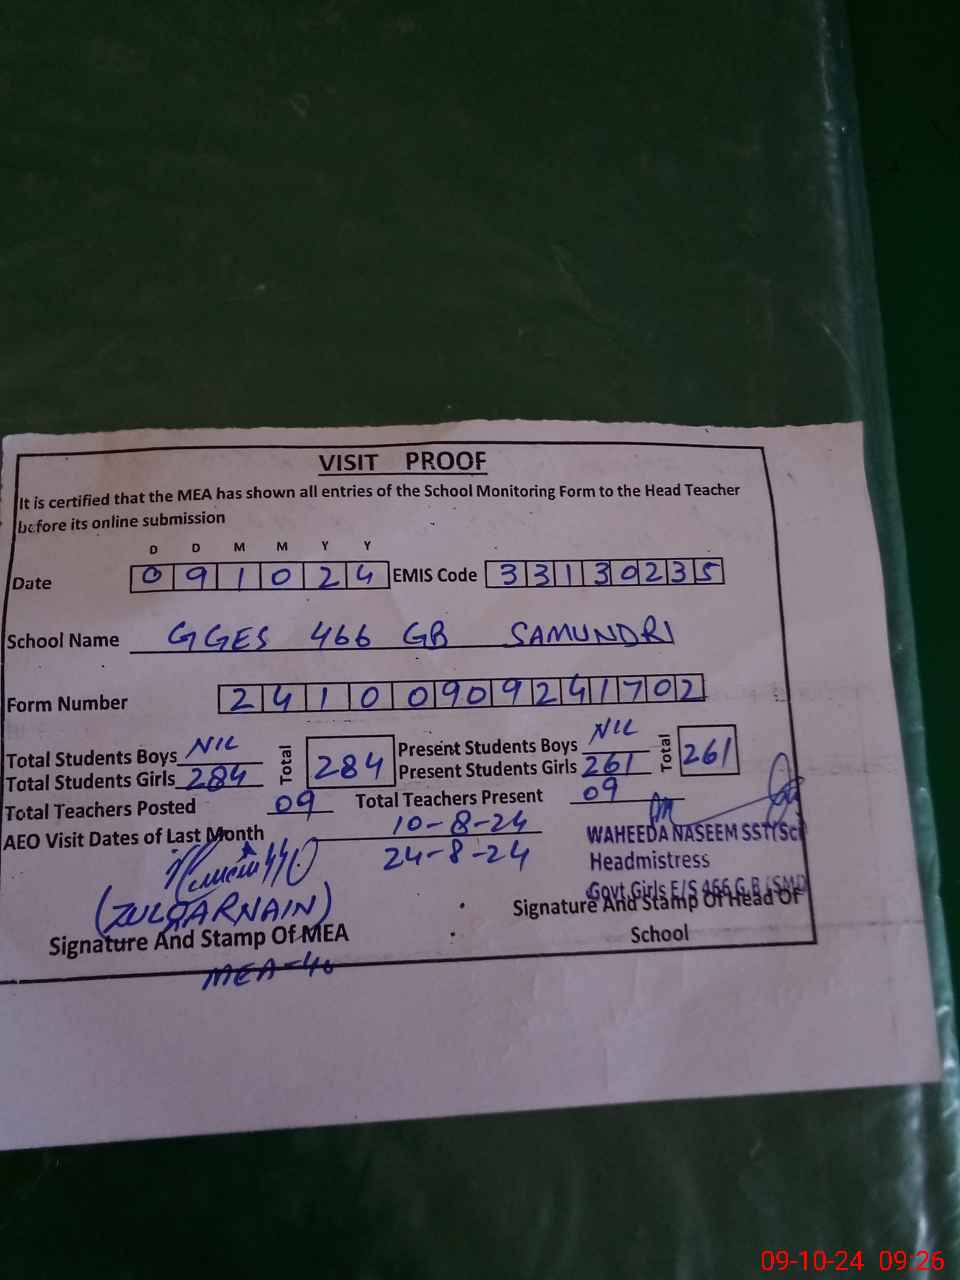 VISIT PROOF
It is certified that the MEA has shown all entries of the School Monitoring Form to the Head Teacher
before its online submission
D D M M Y Y
Date 0 9 1 0 2 4 EMIS Code 3 3 1 3 0 2 3 5
School Name GGES 466 GB SAMUNDRI
Form Number 2 4 1 0 0 9 0 9 2 4 1 7 0 2
Total Students Boys NIL Total 284 Present Students Boys NIL Total 261
Total Students Girls 284 Present Students Girls 261
Total Teachers Posted 09 Total Teachers Present 09
AEO Visit Dates of Last Month 10-8-24
24-8-24
WAHEEDA NASEEM SST(Sci
Headmistress
Govt.Girls E/S 466 G.B (SMD
(ZULQARNAIN)
Signature And Stamp Of MEA
Signature And Stamp Of Head Of
School
MEA-40
09-10-24 09:26